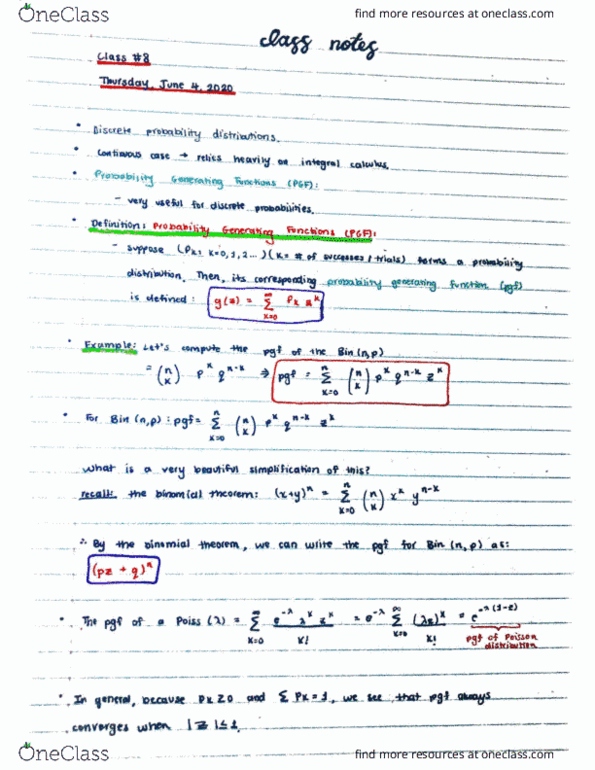 OneClass
find more resources at oneclass.com
class notes
Class #8
Thursday, June 4, 2020
• Discrete probability distributions.
• Continuous case → relies heavily on integral calculus.
• Probability Generating Functions (PGF):
– very useful for discrete probabilities.
• Definition: Probability Generating Functions (PGF):
– suppose (Pk, k=0,1,2...) (k = # of successes / trials) forms a probability
distribution. Then, its corresponding probability generating function (pgf)
is defined: g(z) = ∑_{k=0}^{∞} Pk z^k
• Example: Let's compute the pgf of the Bin(n,p)
= (n k) p^k q^{n-k} ⇒ pgf = ∑_{k=0}^{n} (n k) p^k q^{n-k} z^k
• For Bin (n,p): pgf = ∑_{k=0}^{n} (n k) p^k q^{n-k} z^k
what is a very beautiful simplification of this?
recall: the binomial theorem: (x+y)^n = ∑_{k=0}^{n} (n k) x^k y^{n-k}
∴ By the binomial theorem, we can write the pgf for Bin (n,p) as:
(pz + q)^n
• The pgf of a Poiss (λ) = ∑_{k=0}^{∞} e^{-λ} λ^k z^k / k! = e^{-λ} ∑_{k=0}^{∞} (λz)^k / k! = e^{-λ(1-z)}
pgf of poisson
distribution
• In general, because Pk ≥ 0 and ∑ Pk = 1, we see that pgf always
converges when |z| ≤ 1.
OneClass
find more resources at oneclass.com